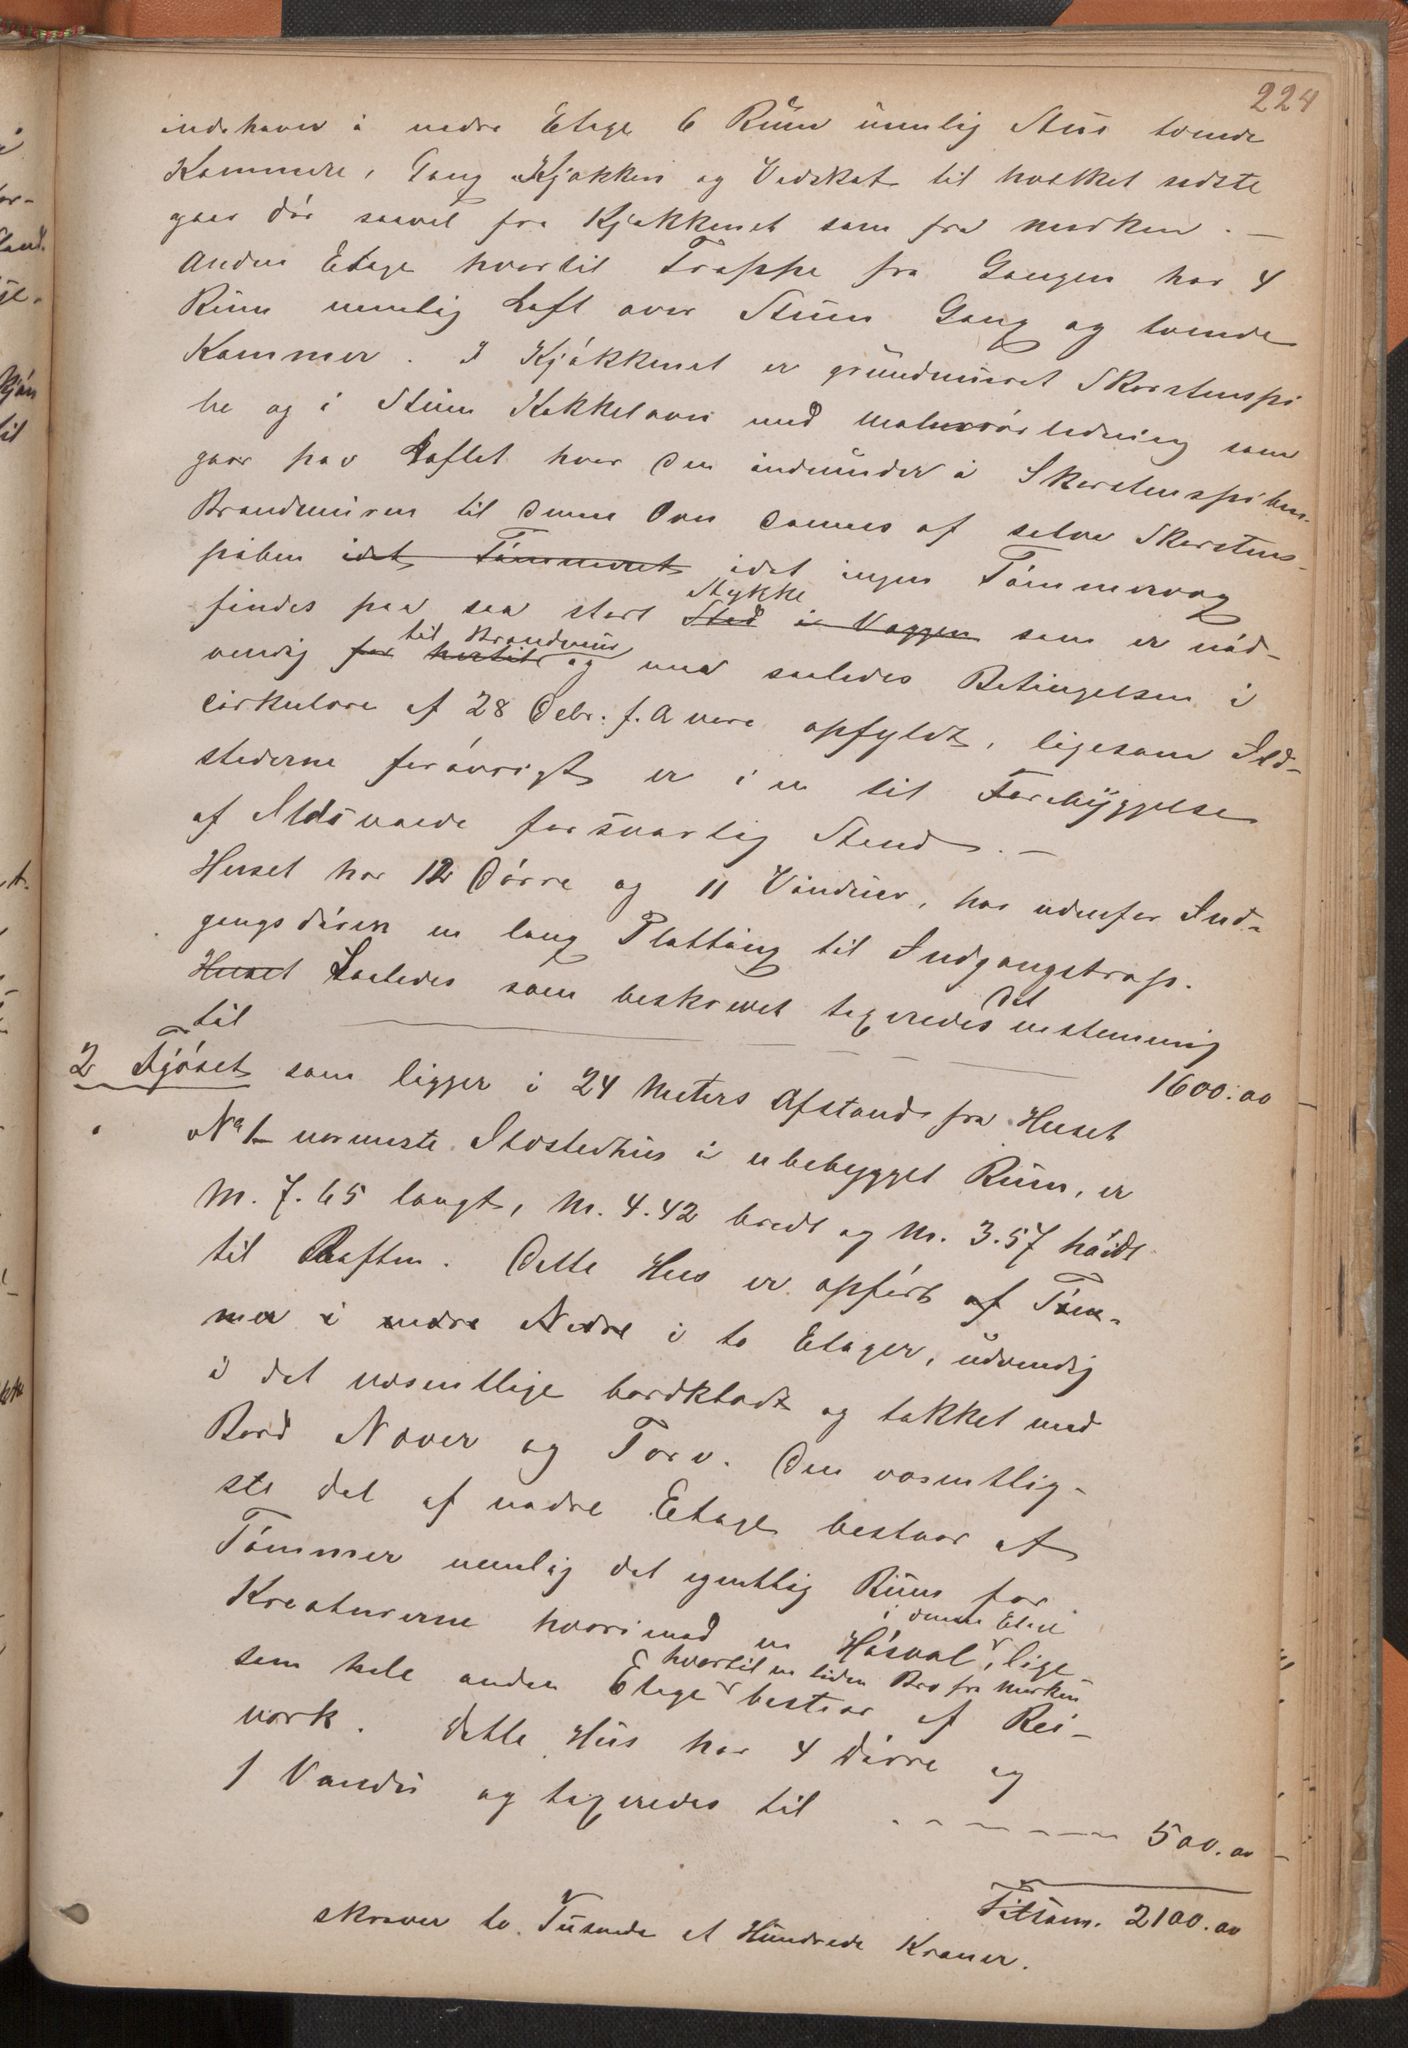 224
indehaver i nedre Etage 6 Rům nemlig Stue tvende
Kammere, Gang Kjøkken og Vedskot til hvilket sidste
gaar Dør saavel fra Kjøkkenet som fra marken. —
Anden Etage hvortil Trappe fra Gangen har 4
Rům nemlig Loft over Stůen Gang og tvende
Kammer. I Kjøkkenet er grůndmůret Skorstenspi
be og i Stůen Kakkelovn med Malmrørledning som
gaar paa Loftet hvor den indmůnder i Skorstenspiben.
Brandmůren til denne Ovn dannes af selve Skorstens-
piben idet Tømmeret idet ingen Tømmervæg
findes paa saa stort Sted i Væggen Stykke som er nød-
vendig for hertil til Brandmůr og maa saaledes Betingelsen i
Cirkulære af 28 Debr. f. A være opfyldt, ligesom Ild-
stederne forøvrigt er i en til Forebyggelse
af Ildsvaade forsvarlig Stand. —
Huset har 12 Døre og 11 Vindůer, har udenfor Ind-
gangsdøren en lang Platting til Indgangstrap.
Huset Saaledes som beskrevet taxeredes det enstemmig
til — — — — 1600.00
2 Fjøset som ligger i 24 Meters Afstand fra Huset
No 1 nærmeste Ildstedhůs i ubebygget Rům, er
M. 7.65 langt, M. 4.42 bredt og M. 3.57 høidt
til Raften. Dette Hus er opført af Tøm-
mer i nedre Nedre i to Etager, udvendig
i det væsentlige bordklædt og tækket med
Bord Næver og Torv. Den væsentlig-
ste del af nedre Etage bestaar af
Tømmer nemlig det egentlig Rům for
Kreaturerne hvorimod en Høsval i denne Etage, lige-
som hele anden Etage hvortil en liden Bro fra Marken bestaar af Rei-
værk. Dette Hůs har 4 Dørre og
1 Vindů og taxeredes til — — — 500.00
Tilsam. 2100.00
skriver to Tůsende et Hůndrede Kroner.